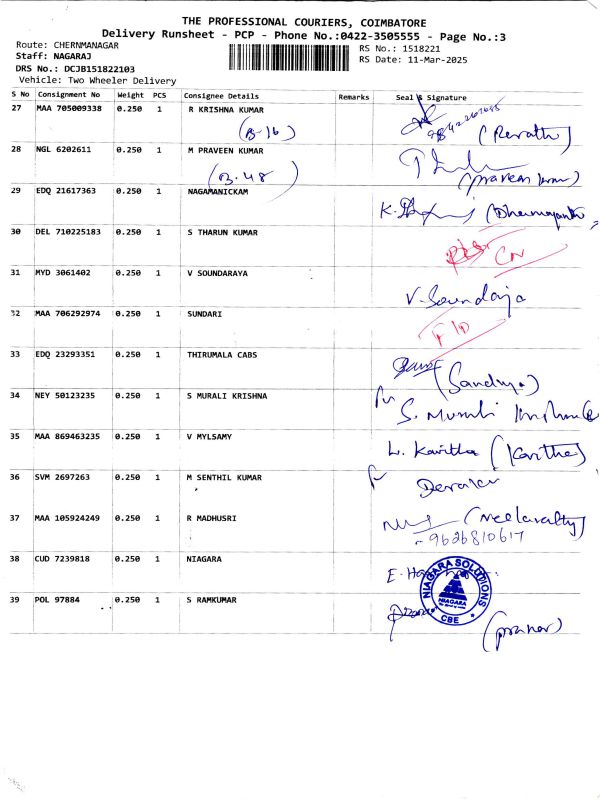 THE PROFESSIONAL COURIERS, COIMBATORE
Delivery Runsheet - PCP - Phone No.:0422-3505555 - Page No.:3
Route: CHERNMANAGAR
RS No.: 1518221
Staff: NAGARAJ
RS Date: 11-Mar-2025
DRS No.: DCJB151822103
Vehicle: Two Wheeler Delivery
S No Consignment No Weight PCS Consignee Details Remarks Seal & Signature
27 MAA 705009338 0.250 1 R KRISHNA KUMAR
(B-16) (Revathi)
28 NGL 6202611 0.250 1 M PRAVEEN KUMAR
(B-48) (praveen kumar)
29 EDQ 21617363 0.250 1 NAGAMANICKAM
30 DEL 710225183 0.250 1 S THARUN KUMAR
CN
31 MYD 3061402 0.250 1 V SOUNDARAYA
V. Soundarya
32 MAA 706292974 0.250 1 SUNDARI
33 EDQ 23293351 0.250 1 THIRUMALA CABS
(Sandhya)
34 NEY 50123235 0.250 1 S MURALI KRISHNA
S. Murali
35 MAA 869463235 0.250 1 V MYLSAMY
L. Kavitha (Kavitha)
36 SVM 2697263 0.250 1 M SENTHIL KUMAR
37 MAA 105924249 0.250 1 R MADHUSRI
9626810617
38 CUD 7239818 0.250 1 NIAGARA
NIAGARA SOLUTIONS
NIAGARA
CBE
39 POL 97884 0.250 1 S RAMKUMAR
(pranav)